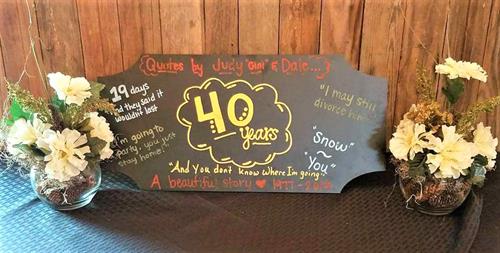 {Quotes by Judy "Gini" & Dale...}
19 days
and they said it
wouldn't last
"I'm going to
party, you just
stay home!"
40
years
"I may still
divorce him"
"Snow"
~
"You"
"And You don't know where I'm going"
A beautiful story ♥ 1977-